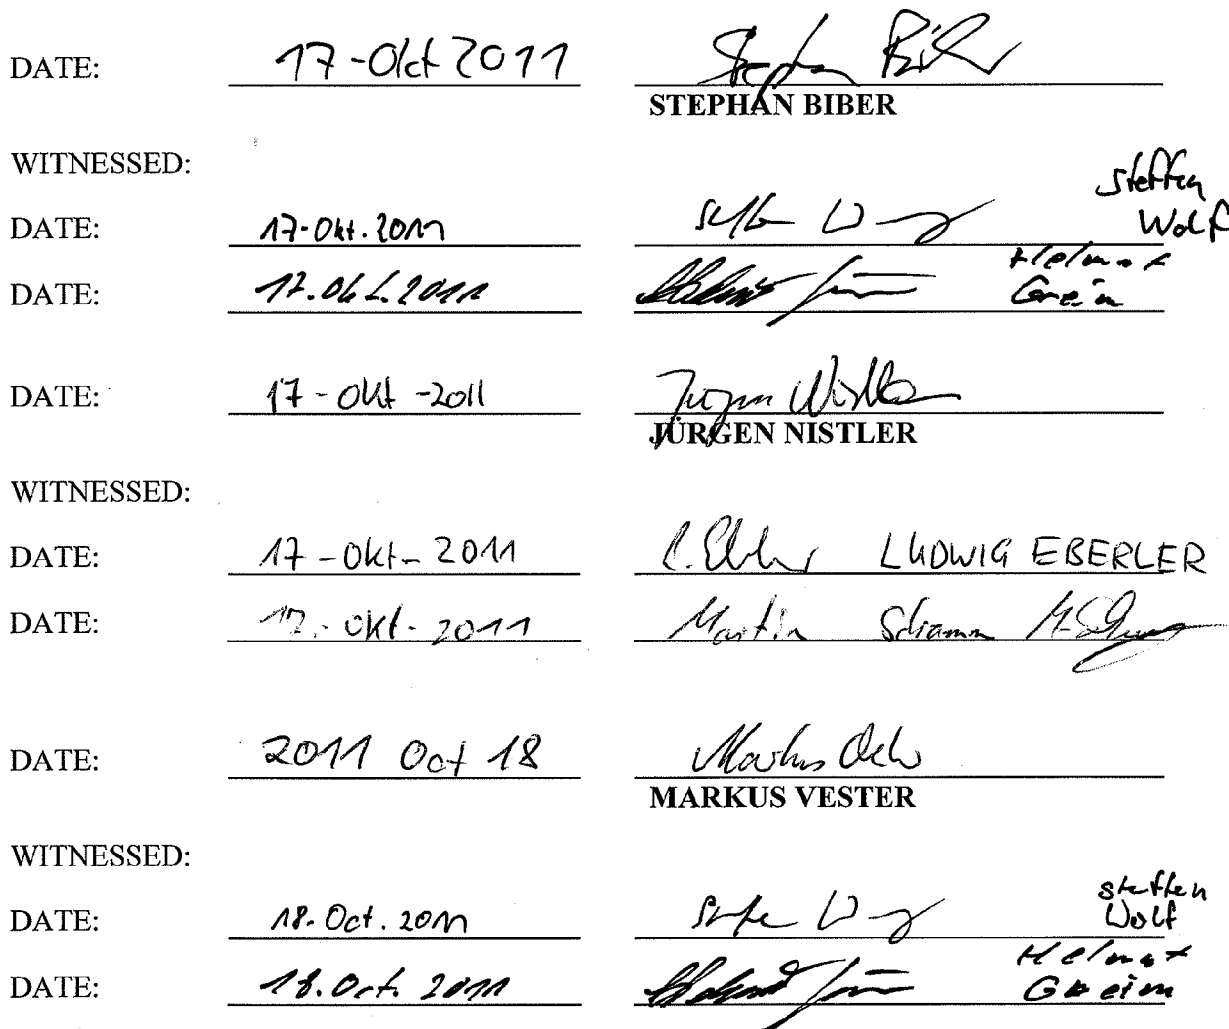 DATE: 17-Okt 2011 Stephan Biber
STEPHAN BIBER
WITNESSED:
DATE: 17-Okt. 2011 Steffen Wolf
DATE: 17.Okt.2011 Helmut Greim
DATE: 17-Okt-2011 Jürgen Nistler
JÜRGEN NISTLER
WITNESSED:
DATE: 17-Okt-2011 LUDWIG EBERLER
DATE: 17.-Okt-2011 Martin Schramm
DATE: 2011 Oct 18 Markus
MARKUS VESTER
WITNESSED:
DATE: 18.Oct.2011 Steffen Wolf
DATE: 18.Oct.2011 Helmut Greim